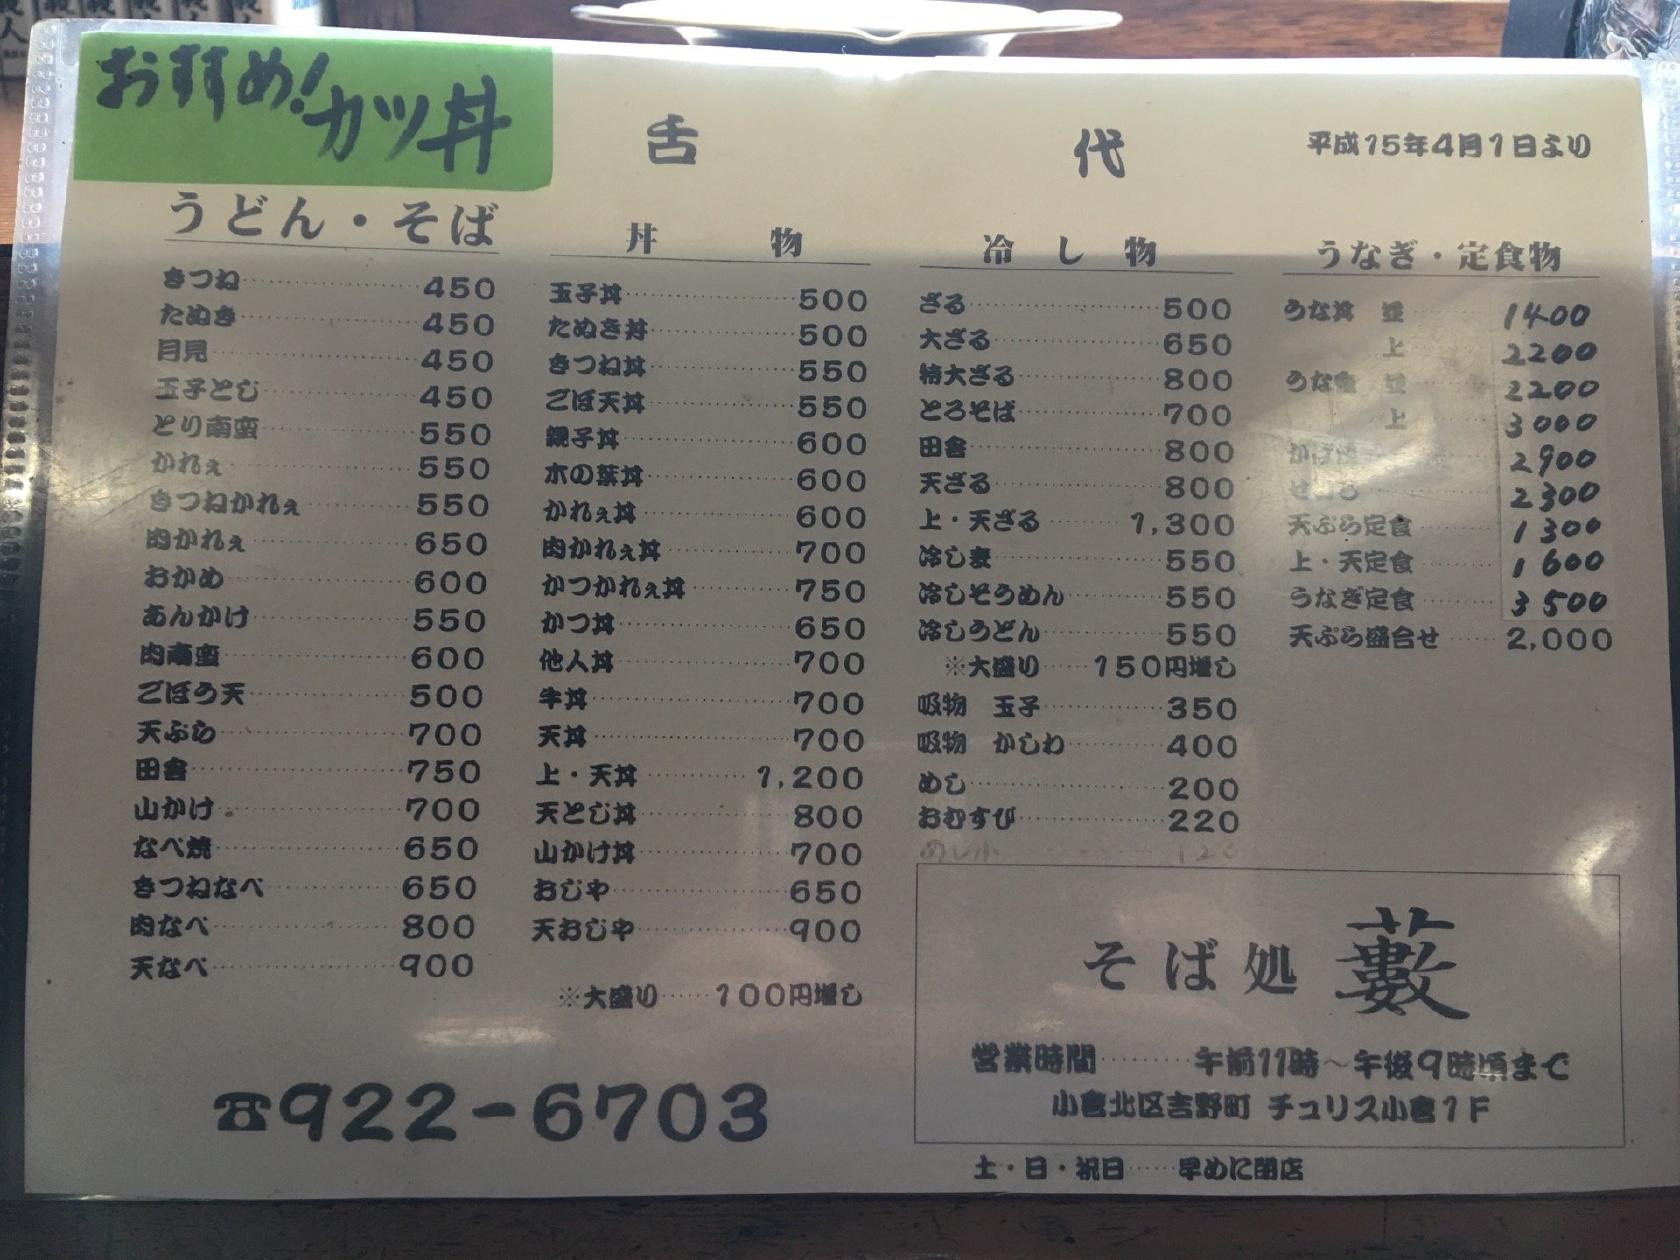 おすすめ！カツ丼
舌代
平成15年4月1日より
うどん・そば
きつね 450
たぬき 450
月見 450
玉子とじ 450
とり南蛮 550
かれぇ 550
きつねかれぇ 550
肉かれぇ 650
おかめ 600
あんかけ 550
肉南蛮 600
ごぼう天 500
天ぷら 700
田舎 750
山かけ 700
なべ焼 650
きつねなべ 650
肉なべ 800
天なべ 900
丼物
玉子丼 500
たぬき丼 500
きつね丼 550
ごぼ天丼 550
親子丼 600
木の葉丼 600
かれぇ丼 600
肉かれぇ丼 700
かつかれぇ丼 750
かつ丼 650
他人丼 700
牛丼 700
天丼 700
上・天丼 1,200
天とじ丼 800
山かけ丼 700
おじや 650
天おじや 900
※大盛り 100円増し
冷し物
ざる 500
大ざる 650
特大ざる 800
とろそば 700
田舎 800
天ざる 800
上・天ざる 1,300
冷し麦 550
冷しそうめん 550
冷しうどん 550
※大盛り 150円増し
吸物 玉子 350
吸物 かしわ 400
めし 200
おむすび 220
めし小 120
うなぎ・定食物
うな丼 並 1400
上 2200
うな重 並 2200
上 3000
2900
2300
天ぷら定食 1300
上・天定食 1600
うなぎ定食 3500
天ぷら盛合せ 2,000
そば処 藪
営業時間 午前11時～午後9時頃まで
小倉北区吉野町 チュリス小倉1F
土・日・祝日 早めに閉店
☎922-6703